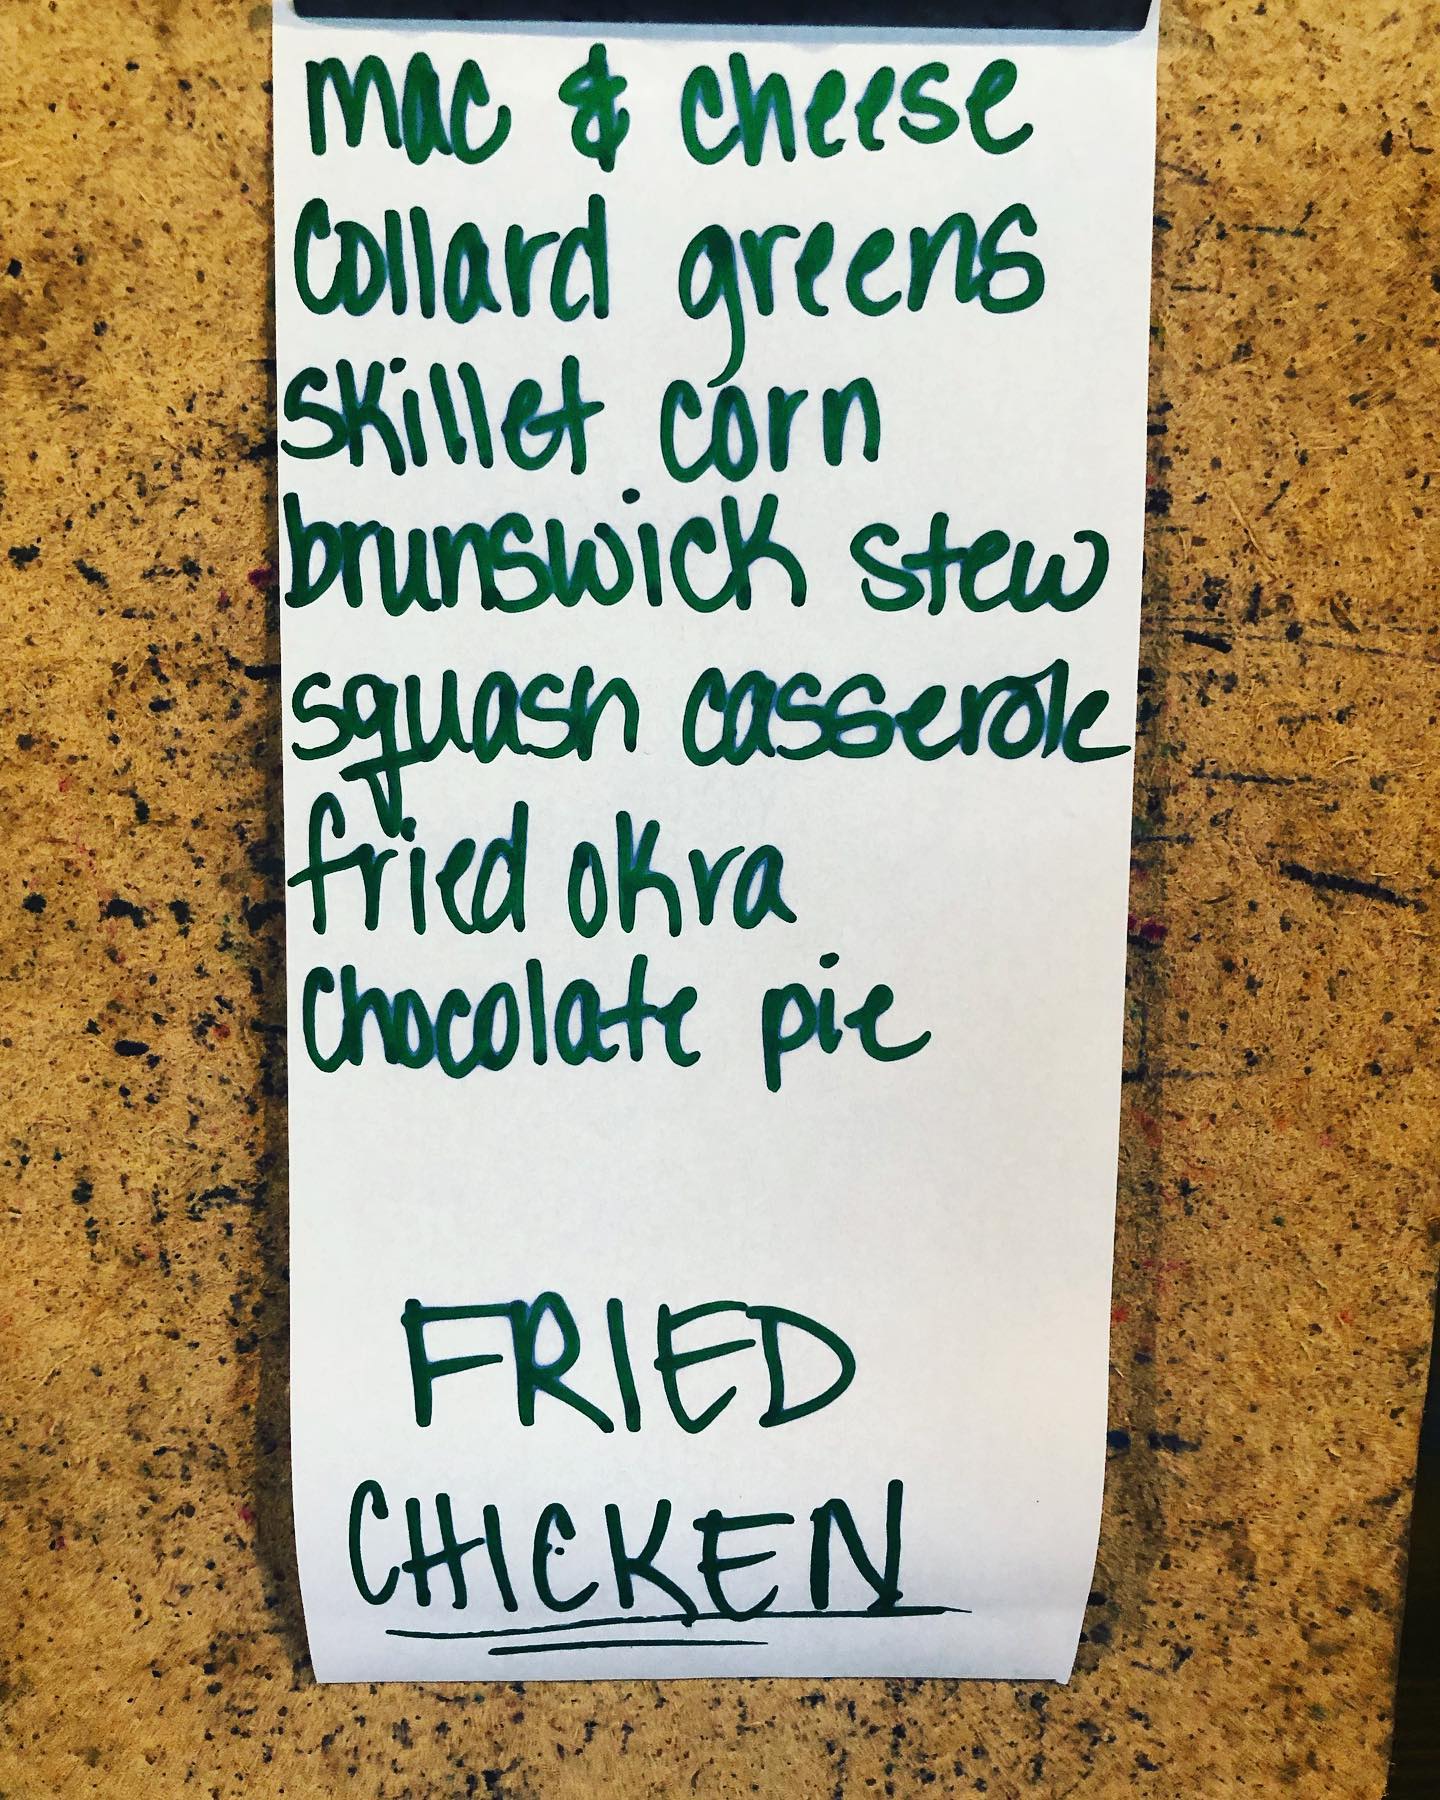 mac & cheese
collard greens
skillet corn
brunswick stew
squash casserole
fried okra
chocolate pie
FRIED
CHICKEN